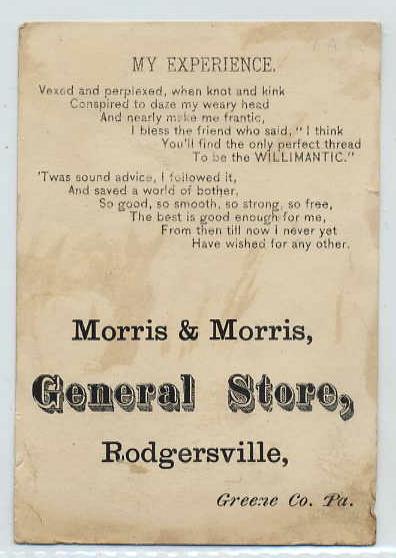 MY EXPERIENCE.
Vexed and perplexed, when knot and kink
Conspired to daze my weary head
And nearly make me frantic,
I bless the friend who said, "I think
You'll find the only perfect thread
To be the WILLIMANTIC."
'Twas sound advice, I followed it,
And saved a world of bother,
So good, so smooth, so strong, so free,
The best is good enough for me,
From then till now I never yet
Have wished for any other.
Morris & Morris,
General Store,
Rodgersville,
Greene Co. Pa.